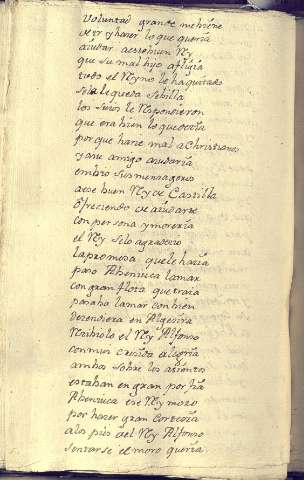 Voluntad grande me viene
de ir y hazer lo que queria
aiudar a esse buen Rey
que su mal hijo afligia
todo el Reyno le ha quitado
sola le queda Sebilla
los suios le Respondieron
que era bien lo que dezia
porque haze mal a Christianos
y a ure amigo aiudaria
embio sus mensageros
a esse buen Rey de Castilla
ofreciendo de aiudarle
con persona y moreria
el Rey se lo agradezio
la promesa que le hazia
paso Abeniuca la mar
con gran flota que traia
pasaba la mar con bien
decendiera en Algezira
Rezibiolo el Rey Alfonso
con mui crezida alegria
ambos sobre los asientos
estaban en gran porfia
Abeniuca ese Rey moro
por hazer gran cortesia
a los pies del Rey Alfonso
sentarse el moro queria